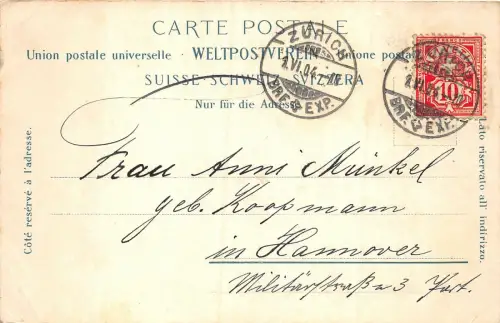 CARTE POSTALE
Union postale universelle · WELTPOSTVEREIN · Unione postale
SUISSE SCHWEIZ SVIZZERA
Nur für die Adresse
Côté resérvé à l'adresse.
Lato riservato all' indirizzo.
ZÜRICH
BRIEF EXP.
ZÜRICH
BRIEF EXP.
10
Frau Anni Münkel
geb. Koopmann
in Hannover
Militärstraße 3 Part.